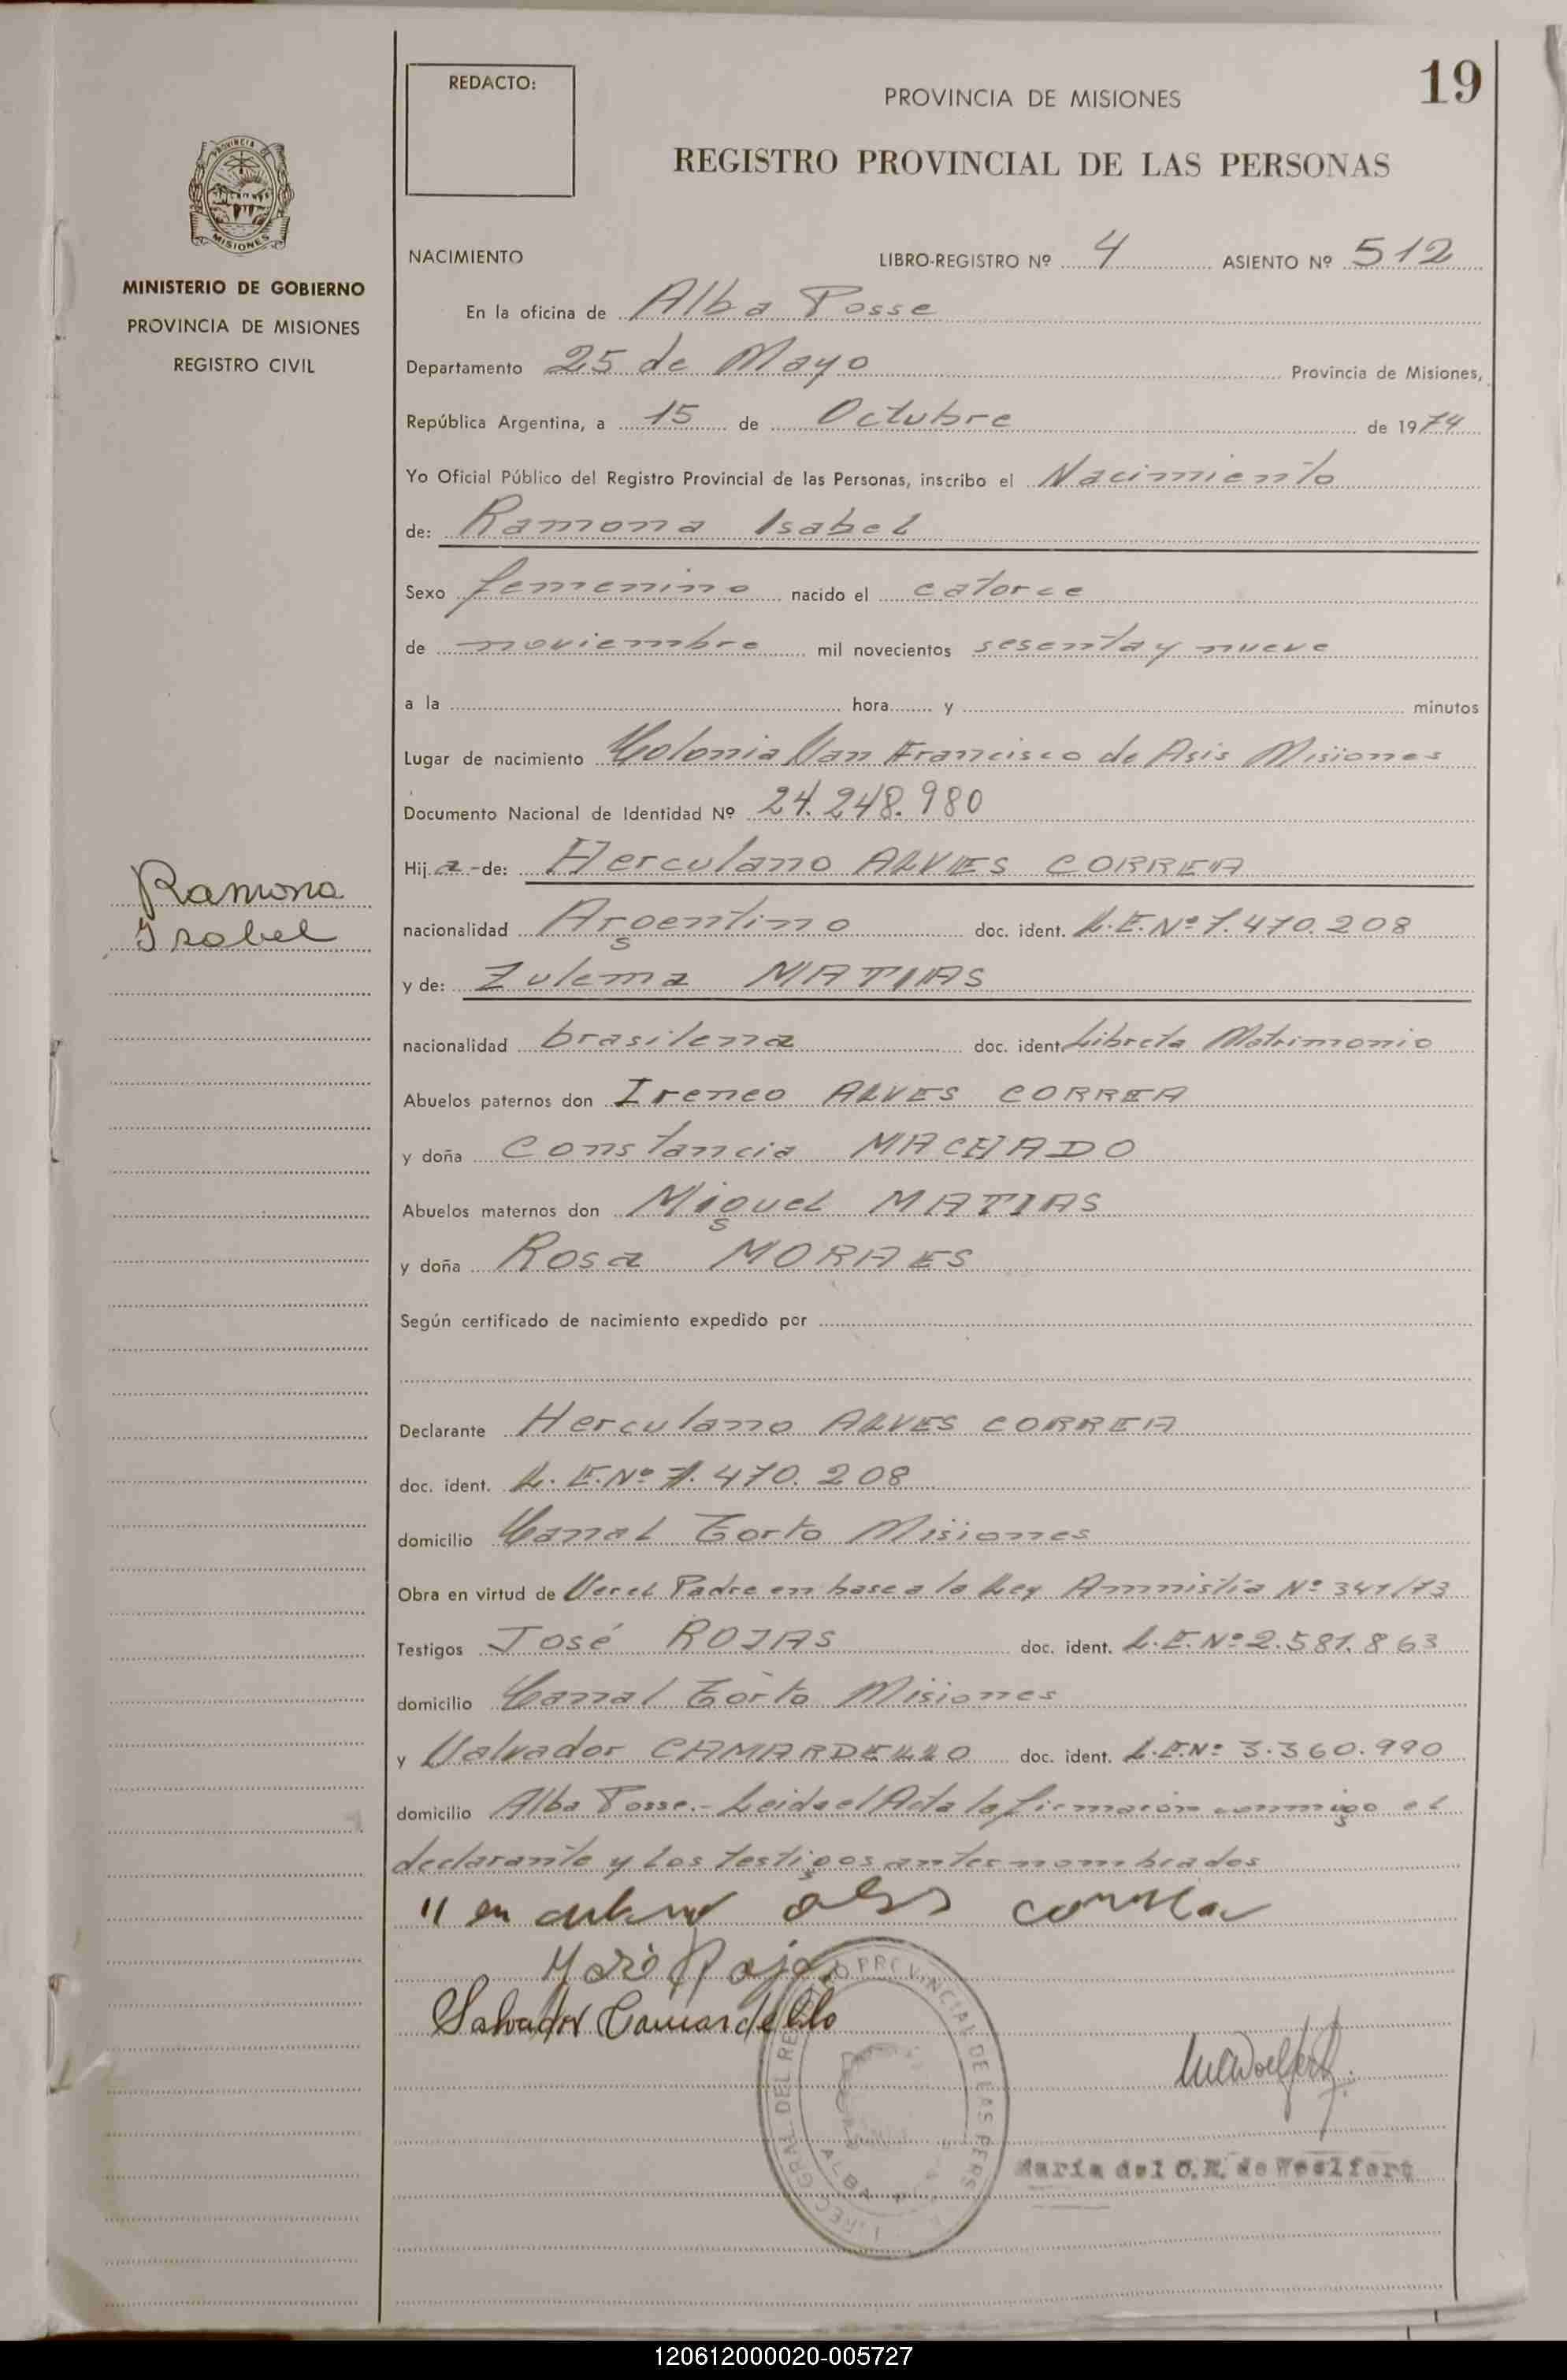 REDACTO:
PROVINCIA DE MISIONES
19
REGISTRO PROVINCIAL DE LAS PERSONAS
PROVINCIA DE
MISIONES
MINISTERIO DE GOBIERNO
PROVINCIA DE MISIONES
REGISTRO CIVIL
NACIMIENTO LIBRO-REGISTRO Nº 4 ASIENTO Nº 512
En la oficina de Alba Posse
Departamento 25 de Mayo Provincia de Misiones,
República Argentina, a 15 de Octubre de 1974
Yo Oficial Público del Registro Provincial de las Personas, inscribo el Nacimiento
de: Ramona Isabel
Sexo femenino nacido el catorce
de noviembre mil novecientos sesenta y nueve
a la hora y minutos
Lugar de nacimiento Colonia San Francisco de Asis Misiones
Documento Nacional de Identidad Nº 24.248.980
Hija-de: Herculano ALVES CORREA
Ramona
Isabel
nacionalidad Argentino doc. ident. L.E.Nº 7.470.208
y de: Zulema MATIAS
nacionalidad brasilena doc. ident. Libreta Matrimonio
Abuelos paternos don Ireneo ALVES CORREA
y doña Constancia MACHADO
Abuelos maternos don Miguel MATIAS
y doña Rosa MORAES
Según certificado de nacimiento expedido por
Declarante Herculano ALVES CORREA
doc. ident. L.E.Nº 7.470.208
domicilio Canal Torto Misiones
Obra en virtud de Ser el Padre en base a la Ley Amnistia Nº 341/73
Testigos José ROJAS doc. ident. L.E.Nº 2.581.863
domicilio Canal Torto Misiones
y Salvador CAMARDELLO doc. ident. L.E.Nº 3.360.990
domicilio Alba Posse.- Leida el Acta la firmarón conmigo el
declarante y los testigos antes nombrados
correa
Rojas
Salvador Camardello
REGISTRO PROVINCIAL DE LAS PERS
ALBA
María del C. R. de Woelfert
120612000020-005727